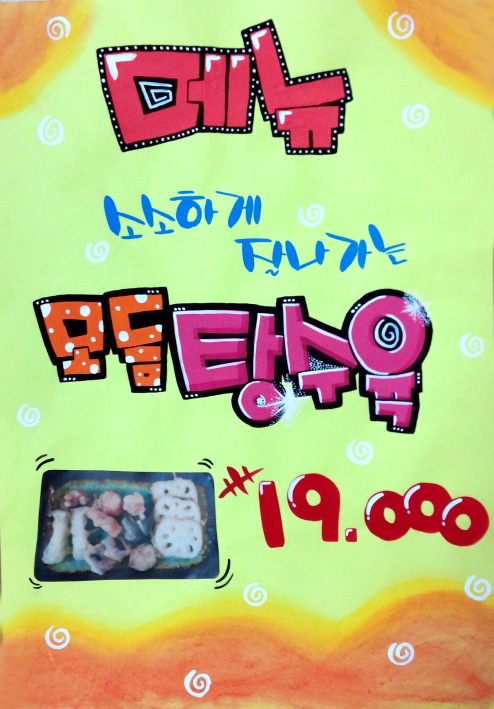 메뉴
소소하게
잘나가는
모듬탕수육
₩19.000